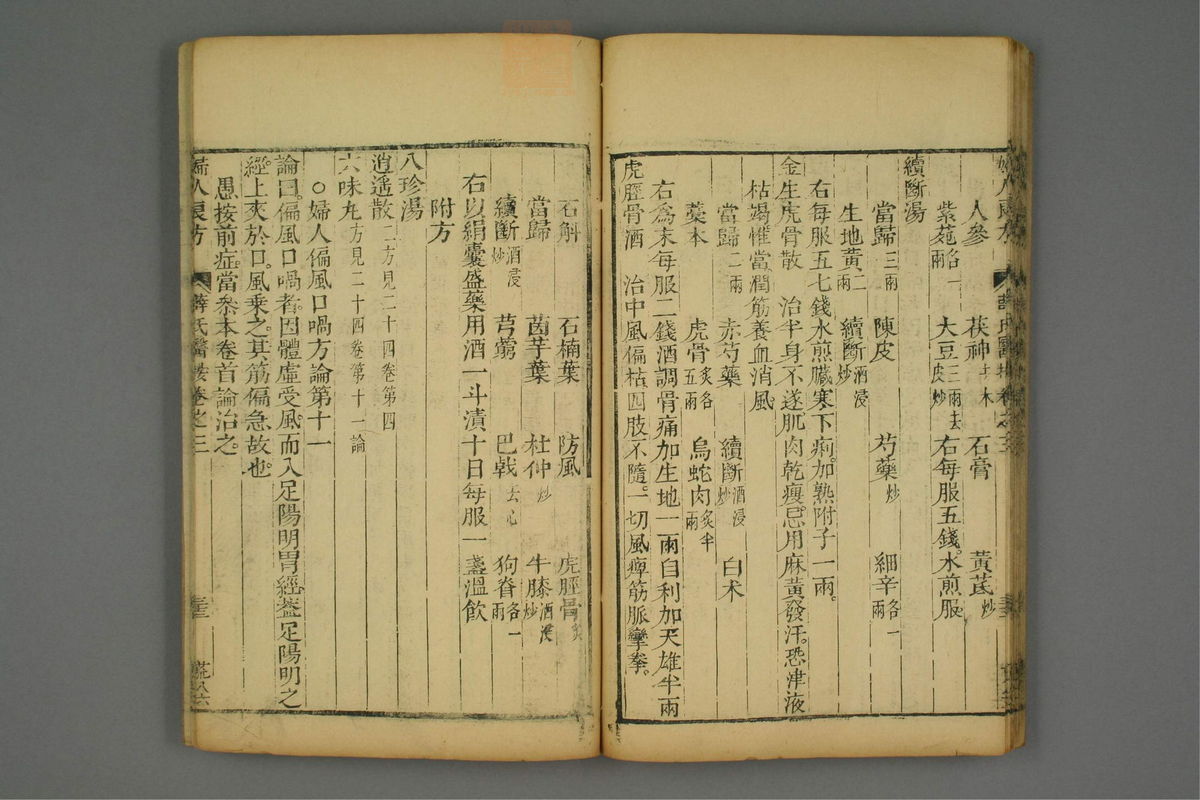 人參 茯神 石膏 黃芪炒
紫菀各一兩 大豆三兩去皮炒 右每服五錢水煎服
續斷湯
當歸三兩 陳皮 芍藥炒 細辛各一兩
生地黃二兩 續斷酒浸炒
右每服五七錢水煎臟寒下痢加熟附子一兩
金生虎骨散 治半身不遂肌肉乾瘦忌用麻黃發汗恐津液
枯竭惟當潤筋養血消風
當歸二兩 赤芍藥 續斷酒浸炒 白朮
藁本 虎骨炙各五兩 烏蛇肉炙半兩
右爲末每服二錢酒調骨痛加生地一兩自利加天雄半兩
虎脛骨酒 治中風偏枯四肢不隨一切風痺筋脈攣拳
石斛 石楠葉 防風 虎脛骨炙
當歸 茵芋葉 杜仲炒 牛膝酒浸炒
續斷酒浸炒 芎藭 巴戟去心 狗脊各一兩
右以絹囊盛藥用酒一斗漬十日每服一盞溫飲
附方
八珍湯
逍遙散二方見二十四卷第四
六味丸方見二十四卷第十一論
○婦人偏風口喎方論第十一
論曰偏風口喎者因體虛受風而入足陽明胃經蓋足陽明之
經上夾於口風乘之其筋偏急故也
愚按前症當叅本卷首論治之
婦人良方 薛氏醫按卷之三